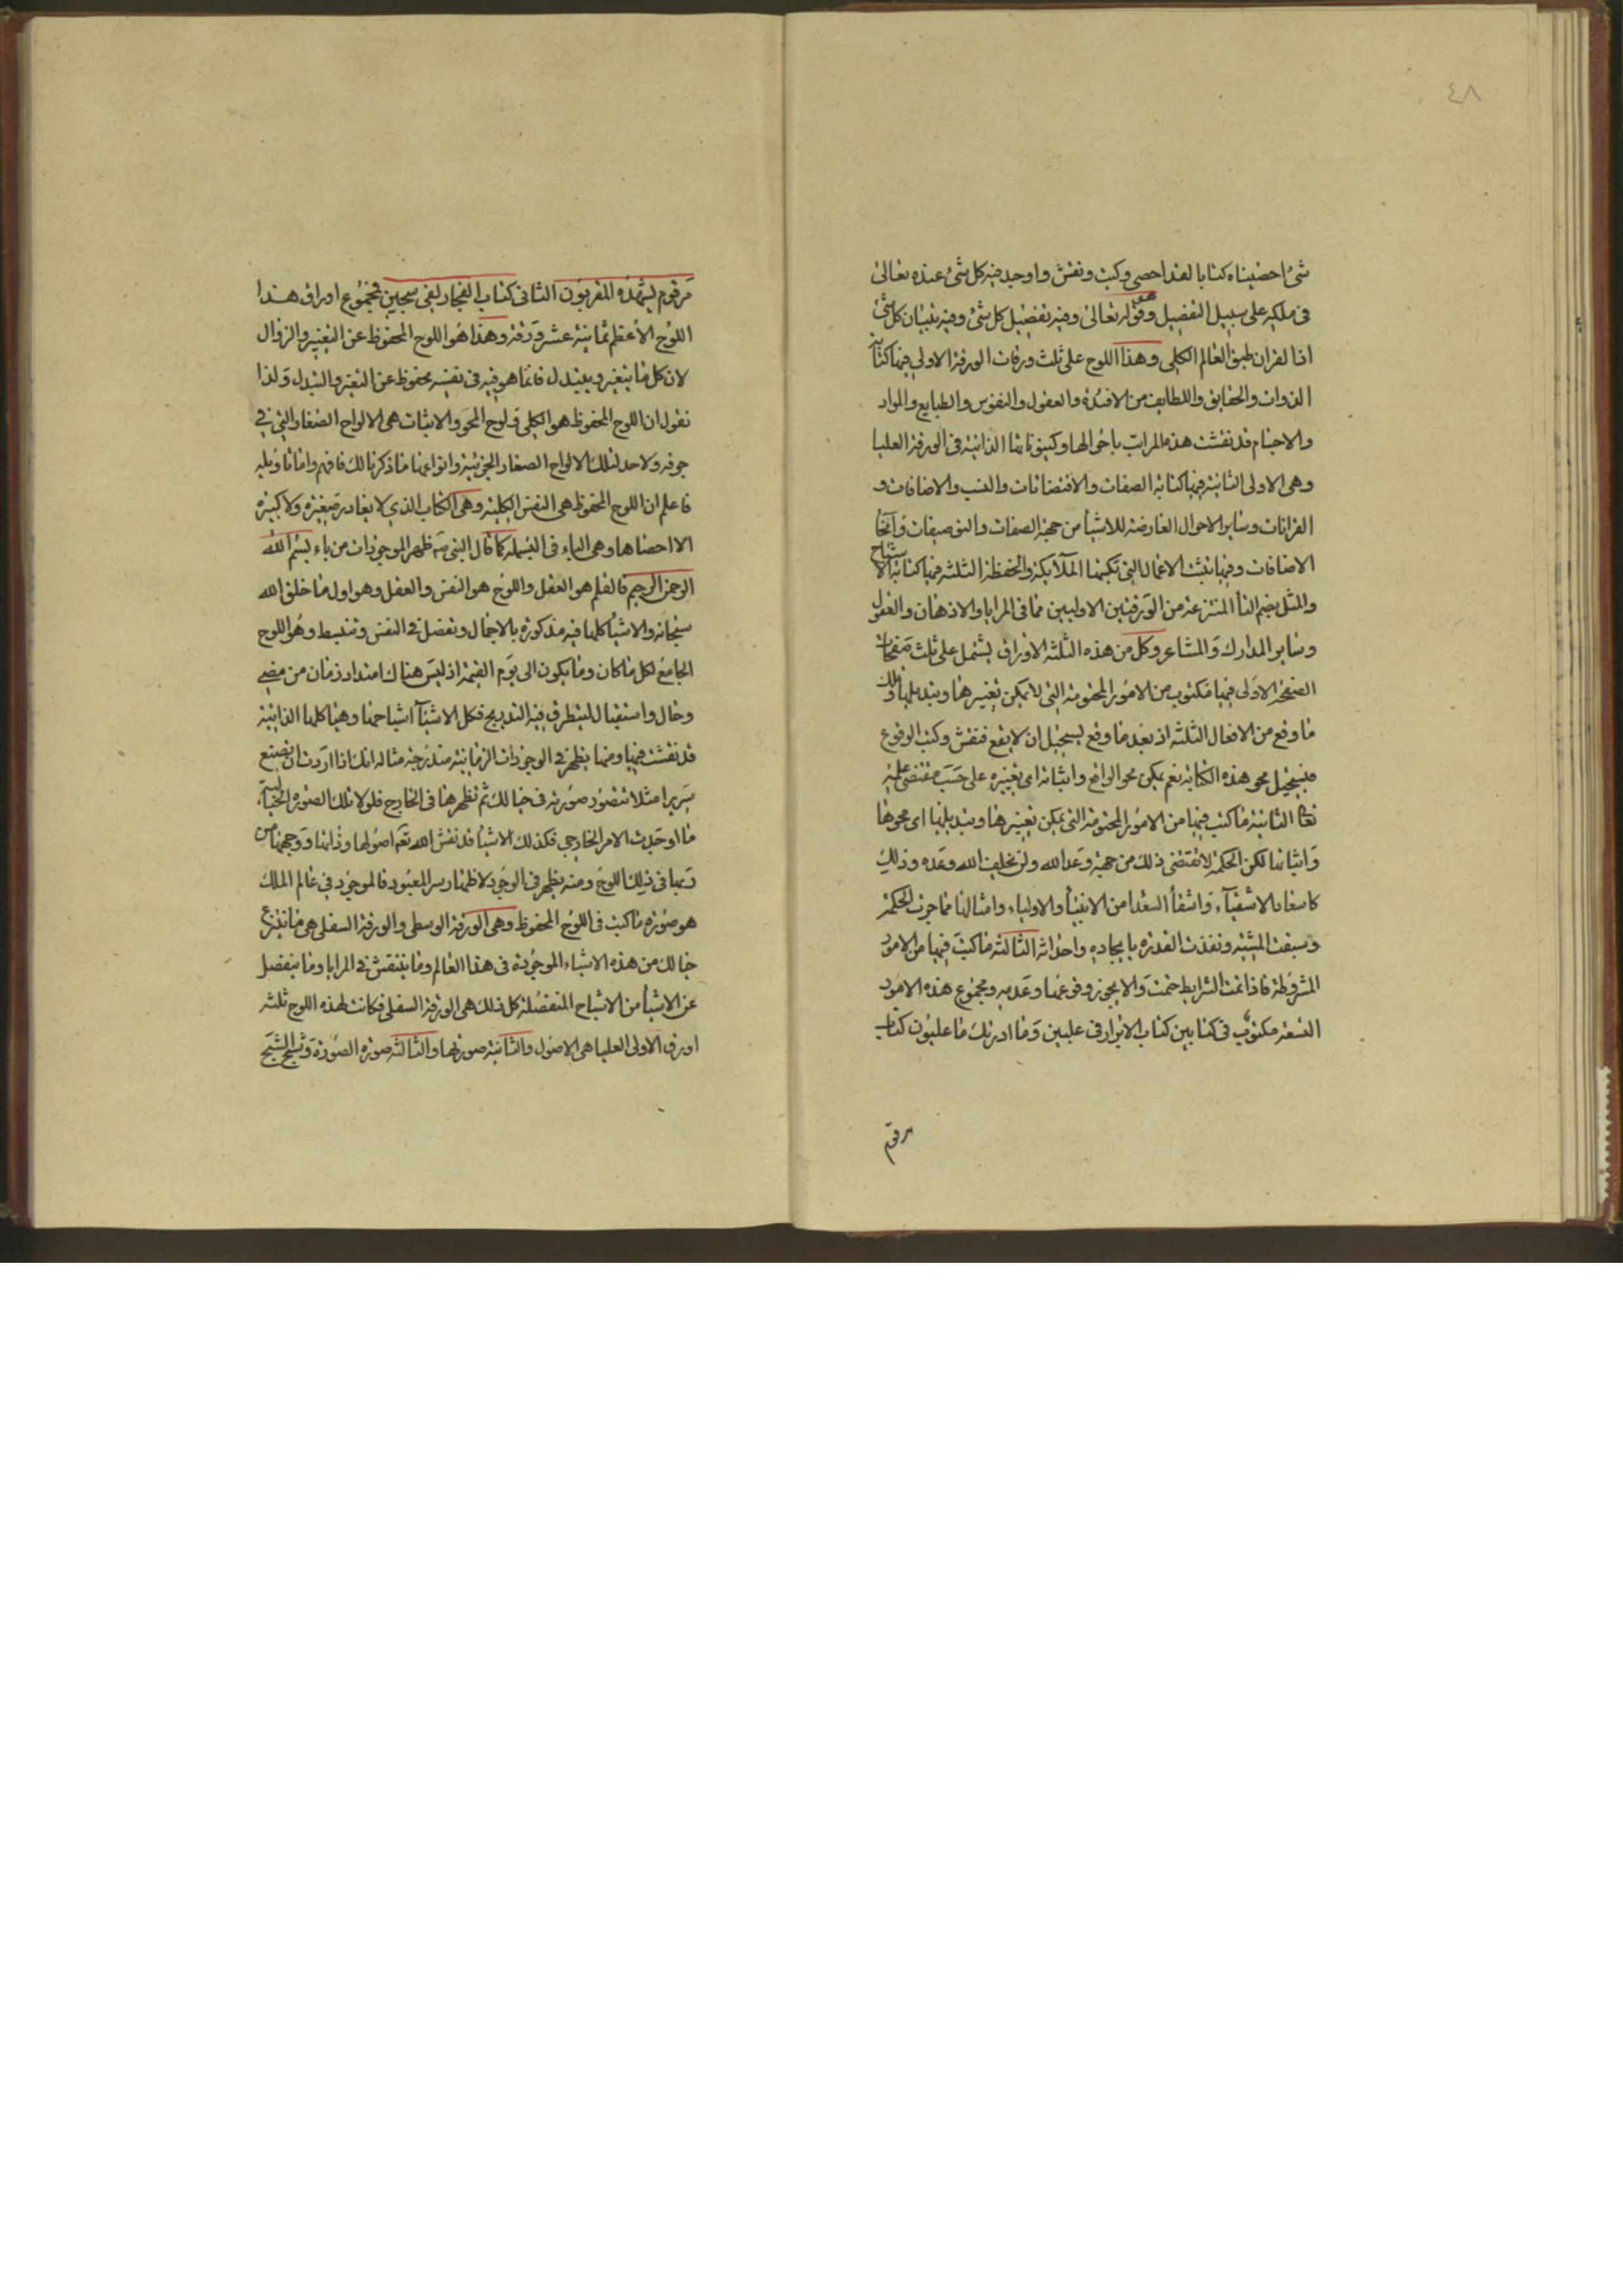 ٤٨
شئ احصيناه كتابا لقد احصى وكتب ونقش واوجد فيه كل شئ عنده تعالى
فى ملكه على سبيل التفصيل وهو قوله تعالى وفيه تفصيل كل شئ وفيه تبيان كل شئ
اذ القران طبق العالم الكلى وهذا اللوح على ثلث ورقات الورقة الاولى فيها كتابة
الذوات والحقايق واللطايف من الافئدة والعقول والنفوس والطبايع والمواد
والاجسام قد نقشت هذه المراتب باحوالها وكينوناتها الذاتية فى الورقة العليا
وهى الاولى الثانية فيها كتابة الصفات والاقتضاءات والنسب والاضافات و
القرانات وساير الاحوال العارضة للاشيأ من جهة الصفات والتوصيفات وانحأ
الاضافات وفيها نقش الاعمال التى تكتبها الملآئكة والحفظة الثلثة فيها كتابة الاشباح
والمثل بضم الثأ المنتزعة من الورقتين الاوليين مما فى المرايا والاذهان والعقول
وساير المدارك والمشاعر وكل من هذه الثلثة الاوراق يشتمل على ثلث صفحات
الصفحة الاولى فيها مكتوب من الامور المحتومة التى لا يمكن تغييرها وتبديلها وتلك
ما وقع من الافعال الثلثة اذ بعد ما وقع يستحيل ان لا يقع فنقش وكتب الوقوع
فيستحيل محو هذه الكتابة نعم يمكن محو الواقع واثباته اى تغييره على حسب مقتضى علمه
تعالى الثانية ما كتب فيها من الامور المحتومة التى يمكن تغييرها وتبديلها اى محوها
واثباتها لكن الحكمة لا تقتضى ذلك من جهة وعد الله ولن يخلف الله وعده وذلك
كاسعاد الاشقيآء واشقأ السعدا من الانبيأ والاولياء وامثالنا مما جرت الحكمة
وسبقت المشية ونفذت القدرة بايجاده واحداثه الثالثة ما كتب فيها من الامور
المشروطة فاذا تمت الشرايط حتمت والا يجوز وقوعها وعدمه ومجموع هذه الامور
التسعة مكتوب فى كتابين كتاب الابرار فى عليين وما ادريك ما عليون كتاب
مرقوم
مرقوم يشهده المقربون الثانى كتاب الفجار لفى سجين فمجموع اوراق هذا
اللوح الاعظم ثمانية عشر ورقة وهذا هو اللوح المحفوظ عن التغيير والزوال
لان كل ما يتغير ويتبدل فانما هو فيه فى نفسه محفوظ عن التغير والتبدل ولذا
نقول ان اللوح المحفوظ هو الكلى ولوح المحو والاثبات هى الالواح الصغار التى فى
جوفه ولا حد لتلك الالواح الصغار الجزئية وانواعها ما ذكرنا لك فافهم واما تاويله
فاعلم ان اللوح المحفوظ هى النفس الكلية وهى الكتاب الذى لا يغادر صغيرة ولا كبيرة
الا احصاها وهى الباء فى البسملة كما قال النبى صه ظهر الموجودات من باء بسم الله
الرحمن الرحيم فالقلم هو العقل واللوح هو النفس والعقل وهو اول ما خلق الله
سبحانه والاشيأ كلها فيه مذكورة بالاجمال وتفصل فى النفس وتنبسط وهو اللوح
الجامع لكل ما كان وما يكون الى يوم القيمة اذ ليس هناك امتداد زمان من مضى
وحال واستقبال لينتظر فيه التدريج فكل الاشيآ اشباحها وهياكلها الذاتية
قد نقشت فيها ومنها يظهر فى الوجودات الزمانية متدرجة مثاله انك اذا اردت ان تصنع
سريرا مثلا تتصور صورته فى خيالك ثم تظهرها فى الخارج فلولا تلك الصورة الخيالية
ما اوجدت الامر الخارجى فكذلك الاشيأ قد نقش الله تعه اصولها وذاتها ووجهها من
ربها فى ذلك اللوح ومنه يظهر فى الوجود لاظهار سر المعبود فالموجود فى عالم الملك
هو صورة ما كتب فى اللوح المحفوظ وهى الورقة الوسطى والورقة السفلى هى ما ينتزع
خيالك من هذه الاشياء الموجودة فى هذا العالم وما ينتقش فى المرايا وما ينفصل
عن الاشيأ من الاشباح المنفصلة كل ذلك هى الورقة السفلى فكانت لهذه اللوح ثلثة
اورق الاولى العليا هى الاصول والثانية صورتها والثالثة صورة الصورة وشبح الشبح